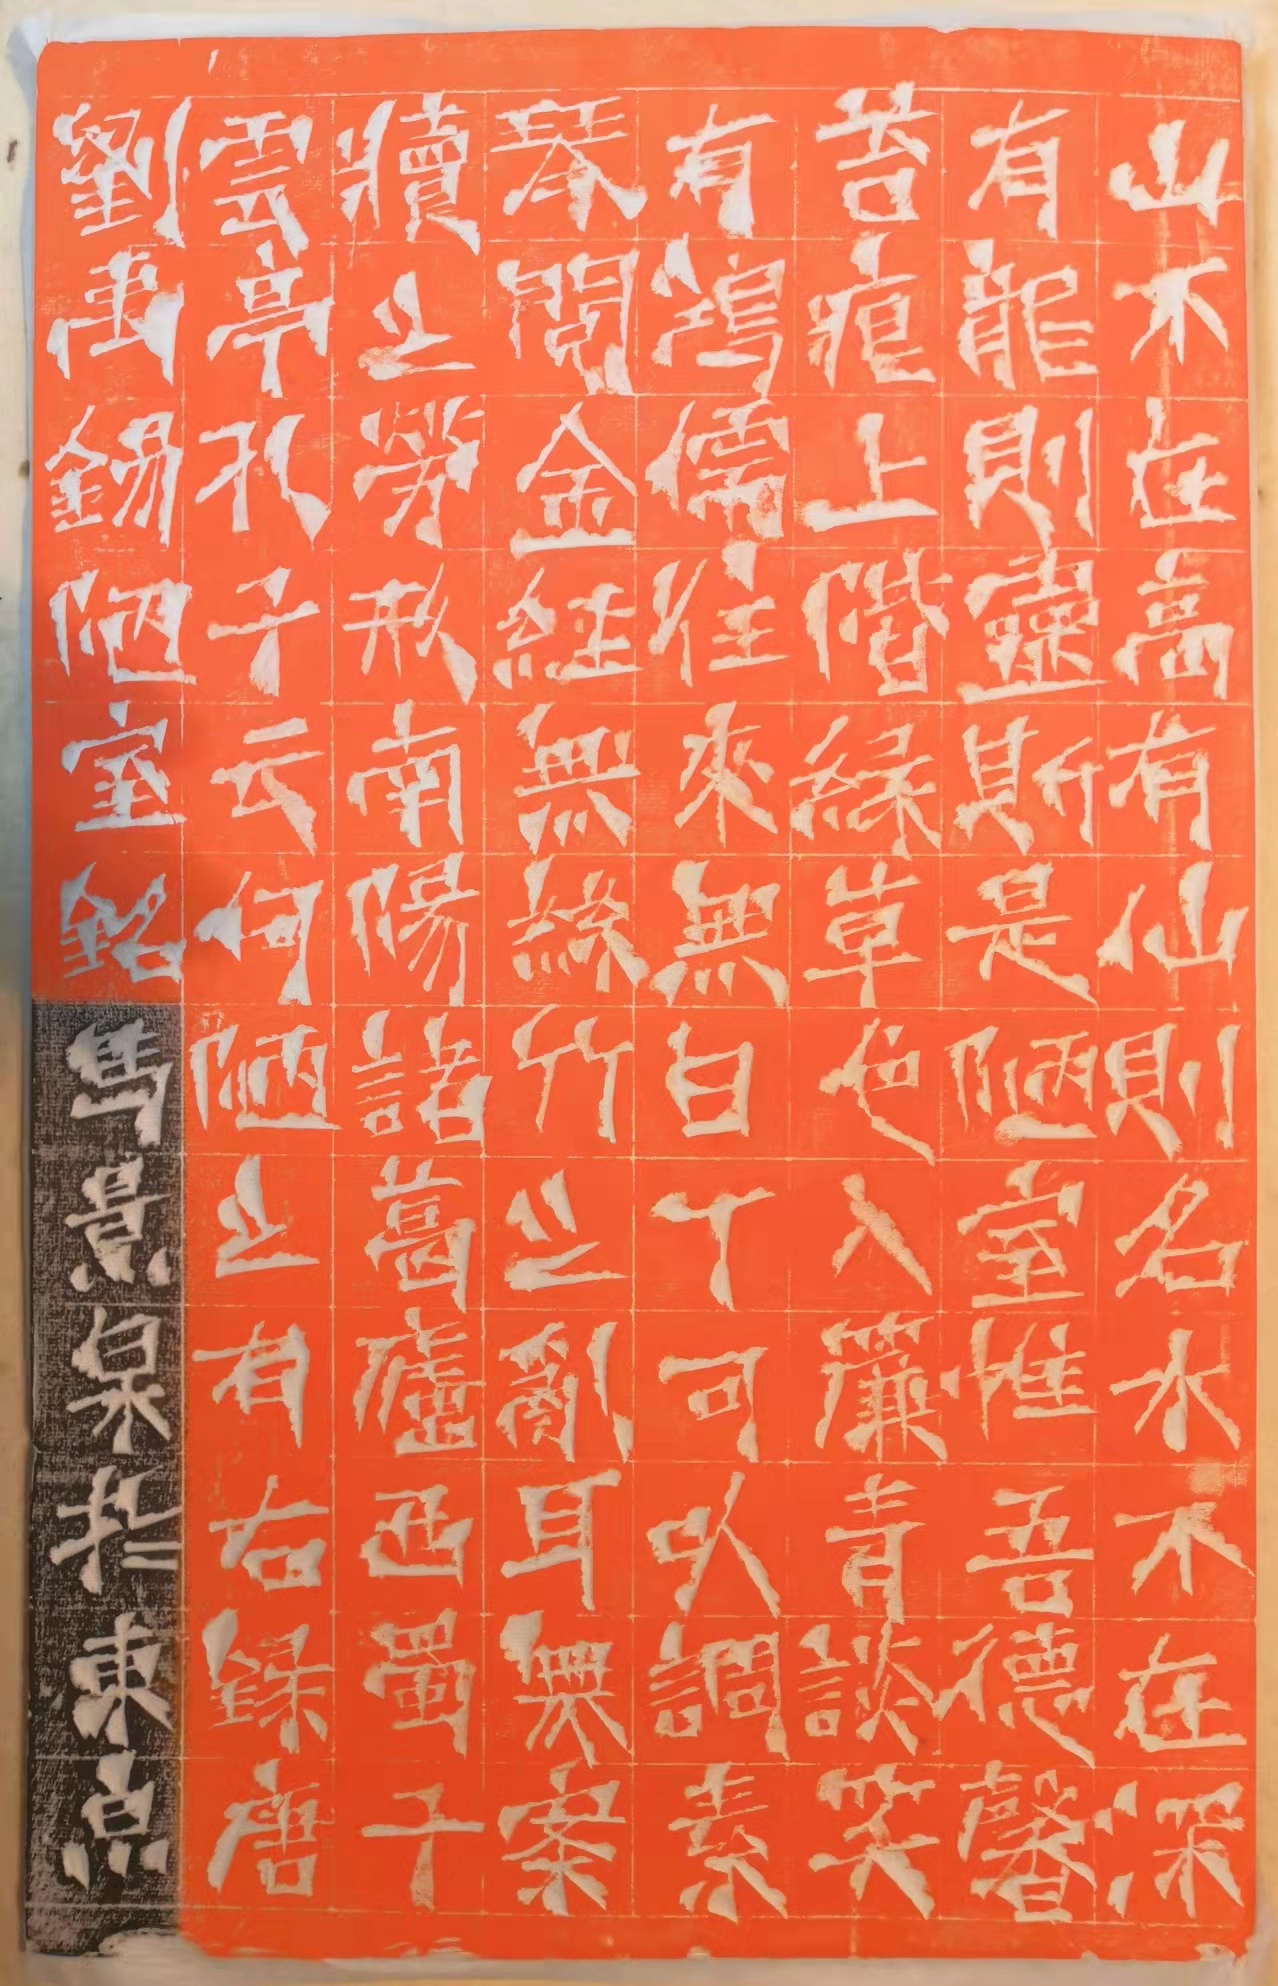 山不在高有仙則名水不在深
有龍則靈斯是陋室惟吾德馨
苔痕上階綠草色入簾青談笑
有鴻儒往來無白丁可以調素
琴閱金經無絲竹之亂耳無案
牘之勞形南陽諸葛廬西蜀子
雲亭孔子云何陋之有右錄唐
劉禹錫陋室銘馬景泉扵東京